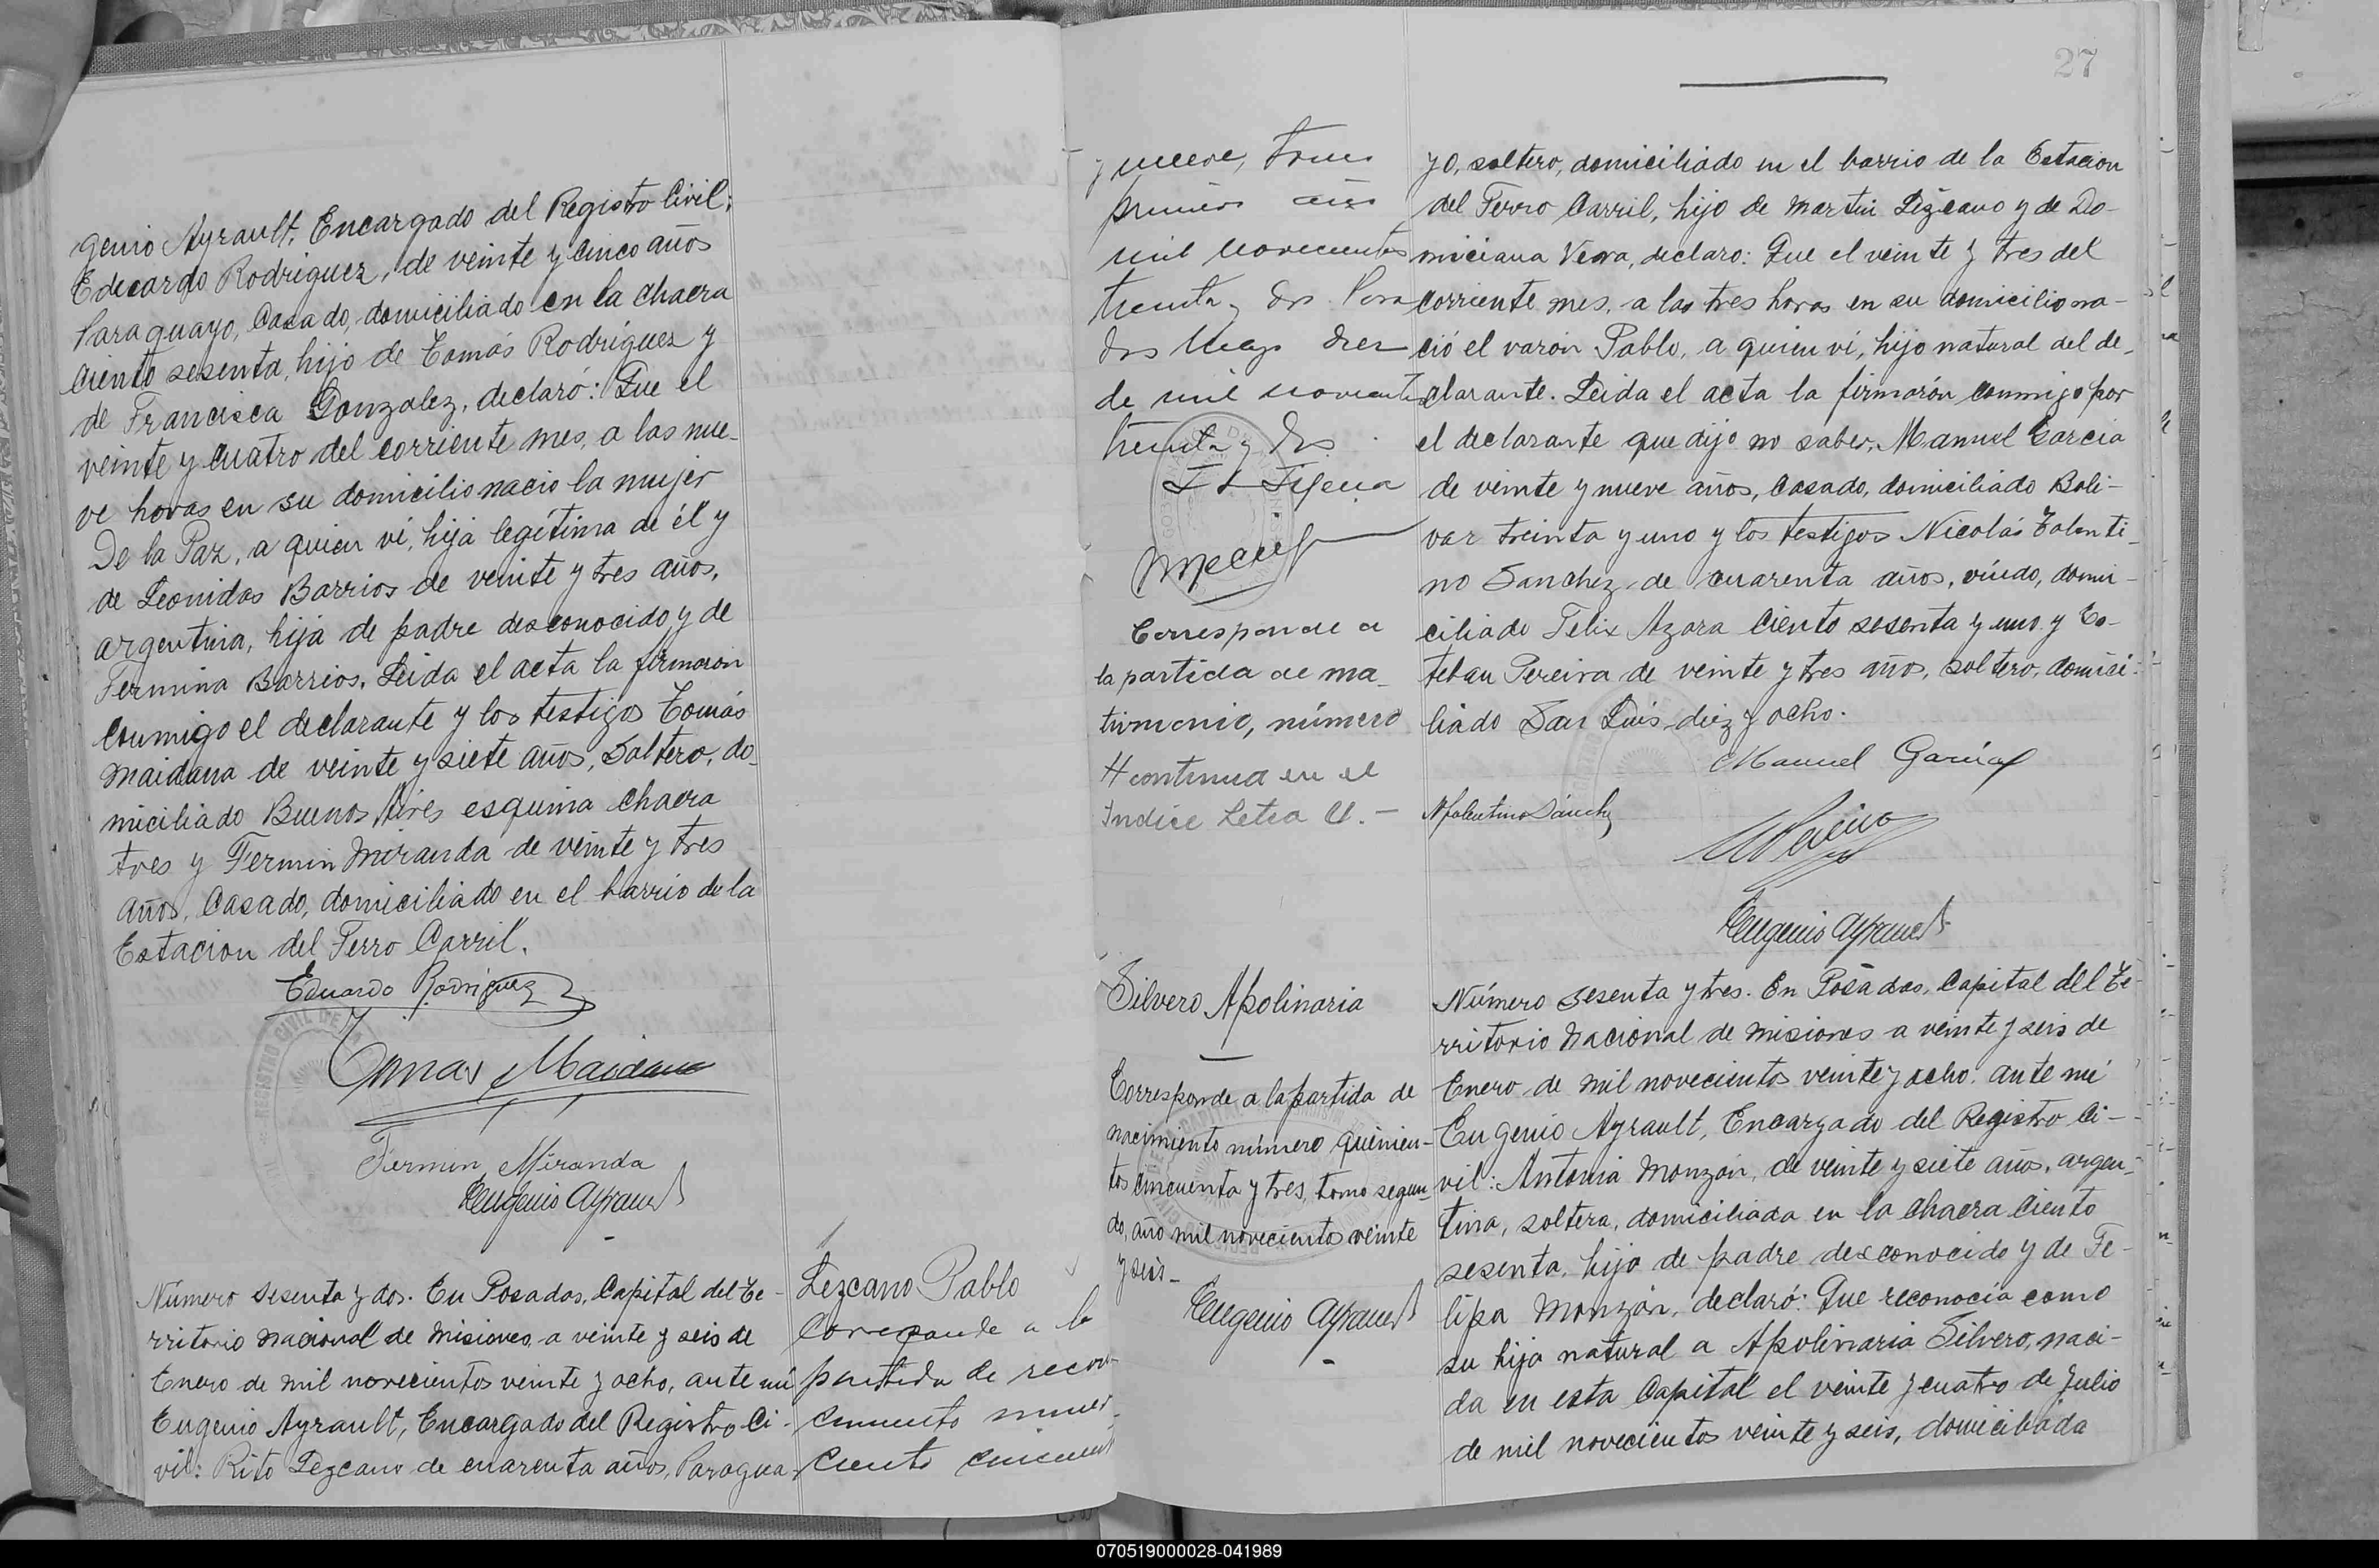 genio Ayrault, Encargado del Registro Civil;
Edecardo Rodriguez, de veinte y cinco años
Paraguayo, Casado, domiciliado en la chacra
ciento sesenta, hijo de Tomás Rodríguez y
de Francisca Gonzalez, declaró: Que el
veinte y cuatro del corriente mes, a las nue-
ve horas en su domicilio nacio la mujer
De la Paz, a quien ví, hija legítima de él y
de Leonidas Barrios de veinte y tres años,
argentina, hija de padre desconocido y de
Fermina Barrios. Leida el acta la firmaron
conmigo el declarante y los testigos Tomás
Maidana de veinte y siete años, Soltero, do-
miciliado Buenos Aires esquina chacra
tres y Fermin Miranda de veinte y tres
años, Casado, domiciliado en el barrio de la
Estacion del Ferro Carril.
Eduardo Rodriguez
Tomas Maidana
Fermin Miranda
Eugenio Ayrault
Número sesenta y dos. En Posadas, Capital del Te-
rritorio Nacional de Misiones, a veinte y seis de
Enero de mil novecientos veinte y ocho, ante mí
Eugenio Ayrault, Encargado del Registro Ci-
vil: Rito Lezcano de cuarenta años, Paragua-
Lezcano Pablo
Corresponde a la
partida de recono-
cimiento numer
ciento cincuent
27
y nueve, tomo
primero año
mil novecientos
treinta y dos. Posa
das Mayo diez
de mil novecientos
treinta y dos.
Corresponde a
la partida de ma-
trimonio, número
# continua en el
Indice Letra U.-
yo, soltero, domiciliado en el barrio de la Estacion
del Ferro Carril, hijo de Martin Lezcano y de Do-
miciana Vera, declaro: Que el veinte y tres del
corriente mes, a las tres horas en su domicilio na-
ció el varón Pablo, a quien ví, hijo natural del de-
clarante. Leida el acta la firmarón conmigo por
el declarante que dijo no saber, Manuel Garcia
de veinte y nueve años, Casado, domiciliado Boli-
var treinta y uno y los testigos Nicolás Tolenti-
no Sanchez de cuarenta años, viudo, domi-
ciliado Felix Azara ciento sesenta y uno y Es-
teban Pereira de veinte y tres años, soltero, domici-
liado San Luis diez y ocho.
Manuel García
NTolentino Sánchez
EPereira
Eugenio Ayrault
Silvero Apolinaria
Corresponde a la partida de
nacimiento número quinien-
tos cincuenta y tres, tomo segun-
do, año mil novecientos veinte
y seis-
Eugenio Ayrault
Número sesenta y tres. En Posadas, Capital del Te-
rritorio Nacional de Misiones a veinte y seis de
Enero de mil novecientos veinte y ocho. ante mí
Eugenio Ayrault, Encargado del Registro Ci-
vil: Antonia Monzón, de veinte y siete años, argen-
tina, soltera, domiciliada en la Chacra Ciento
sesenta, hija de padre desconocido y de Fe-
lipa Monzón, declaró: Que reconocía como
su hija natural a Apolinaria Silvero, naci-
da en esta Capital el veinte y cuatro de Julio
de mil novecientos veinte y seis, domiciliada
070519000028-041989